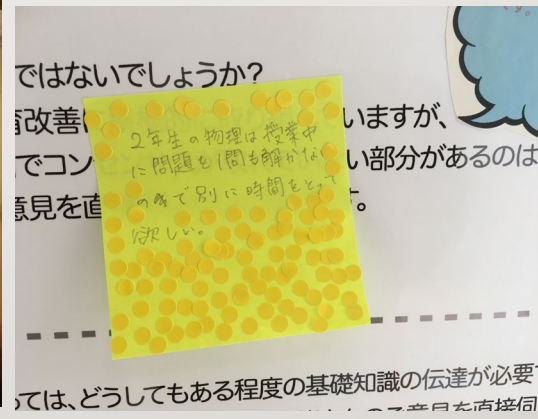 です。
ではないでしょうか?
育改善
いますが、
でコン
い部分があるのは
意見を直
す。
2年生の物理は授業中
に問題を1問も解かない
ので別に時間をとって
欲しい。
っては、どうしてもある程度の基礎知識の伝達が必要で
意見を直接伺